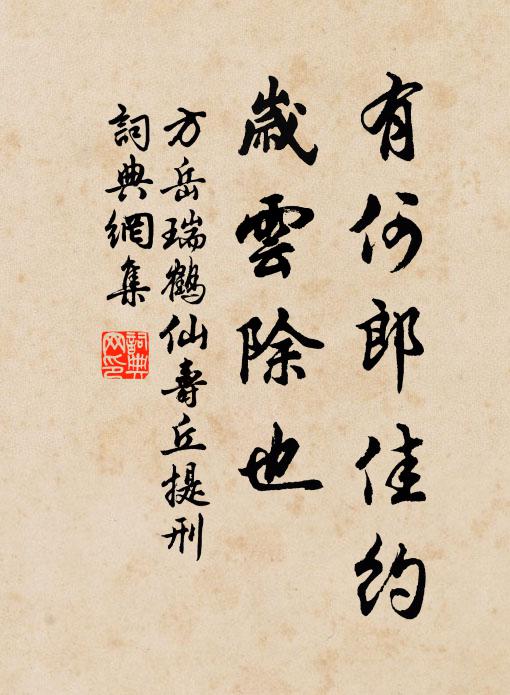 有何郎佳約
歲雲除也
方岳瑞鶴仙壽丘提刑
詞典網集
詞典網印